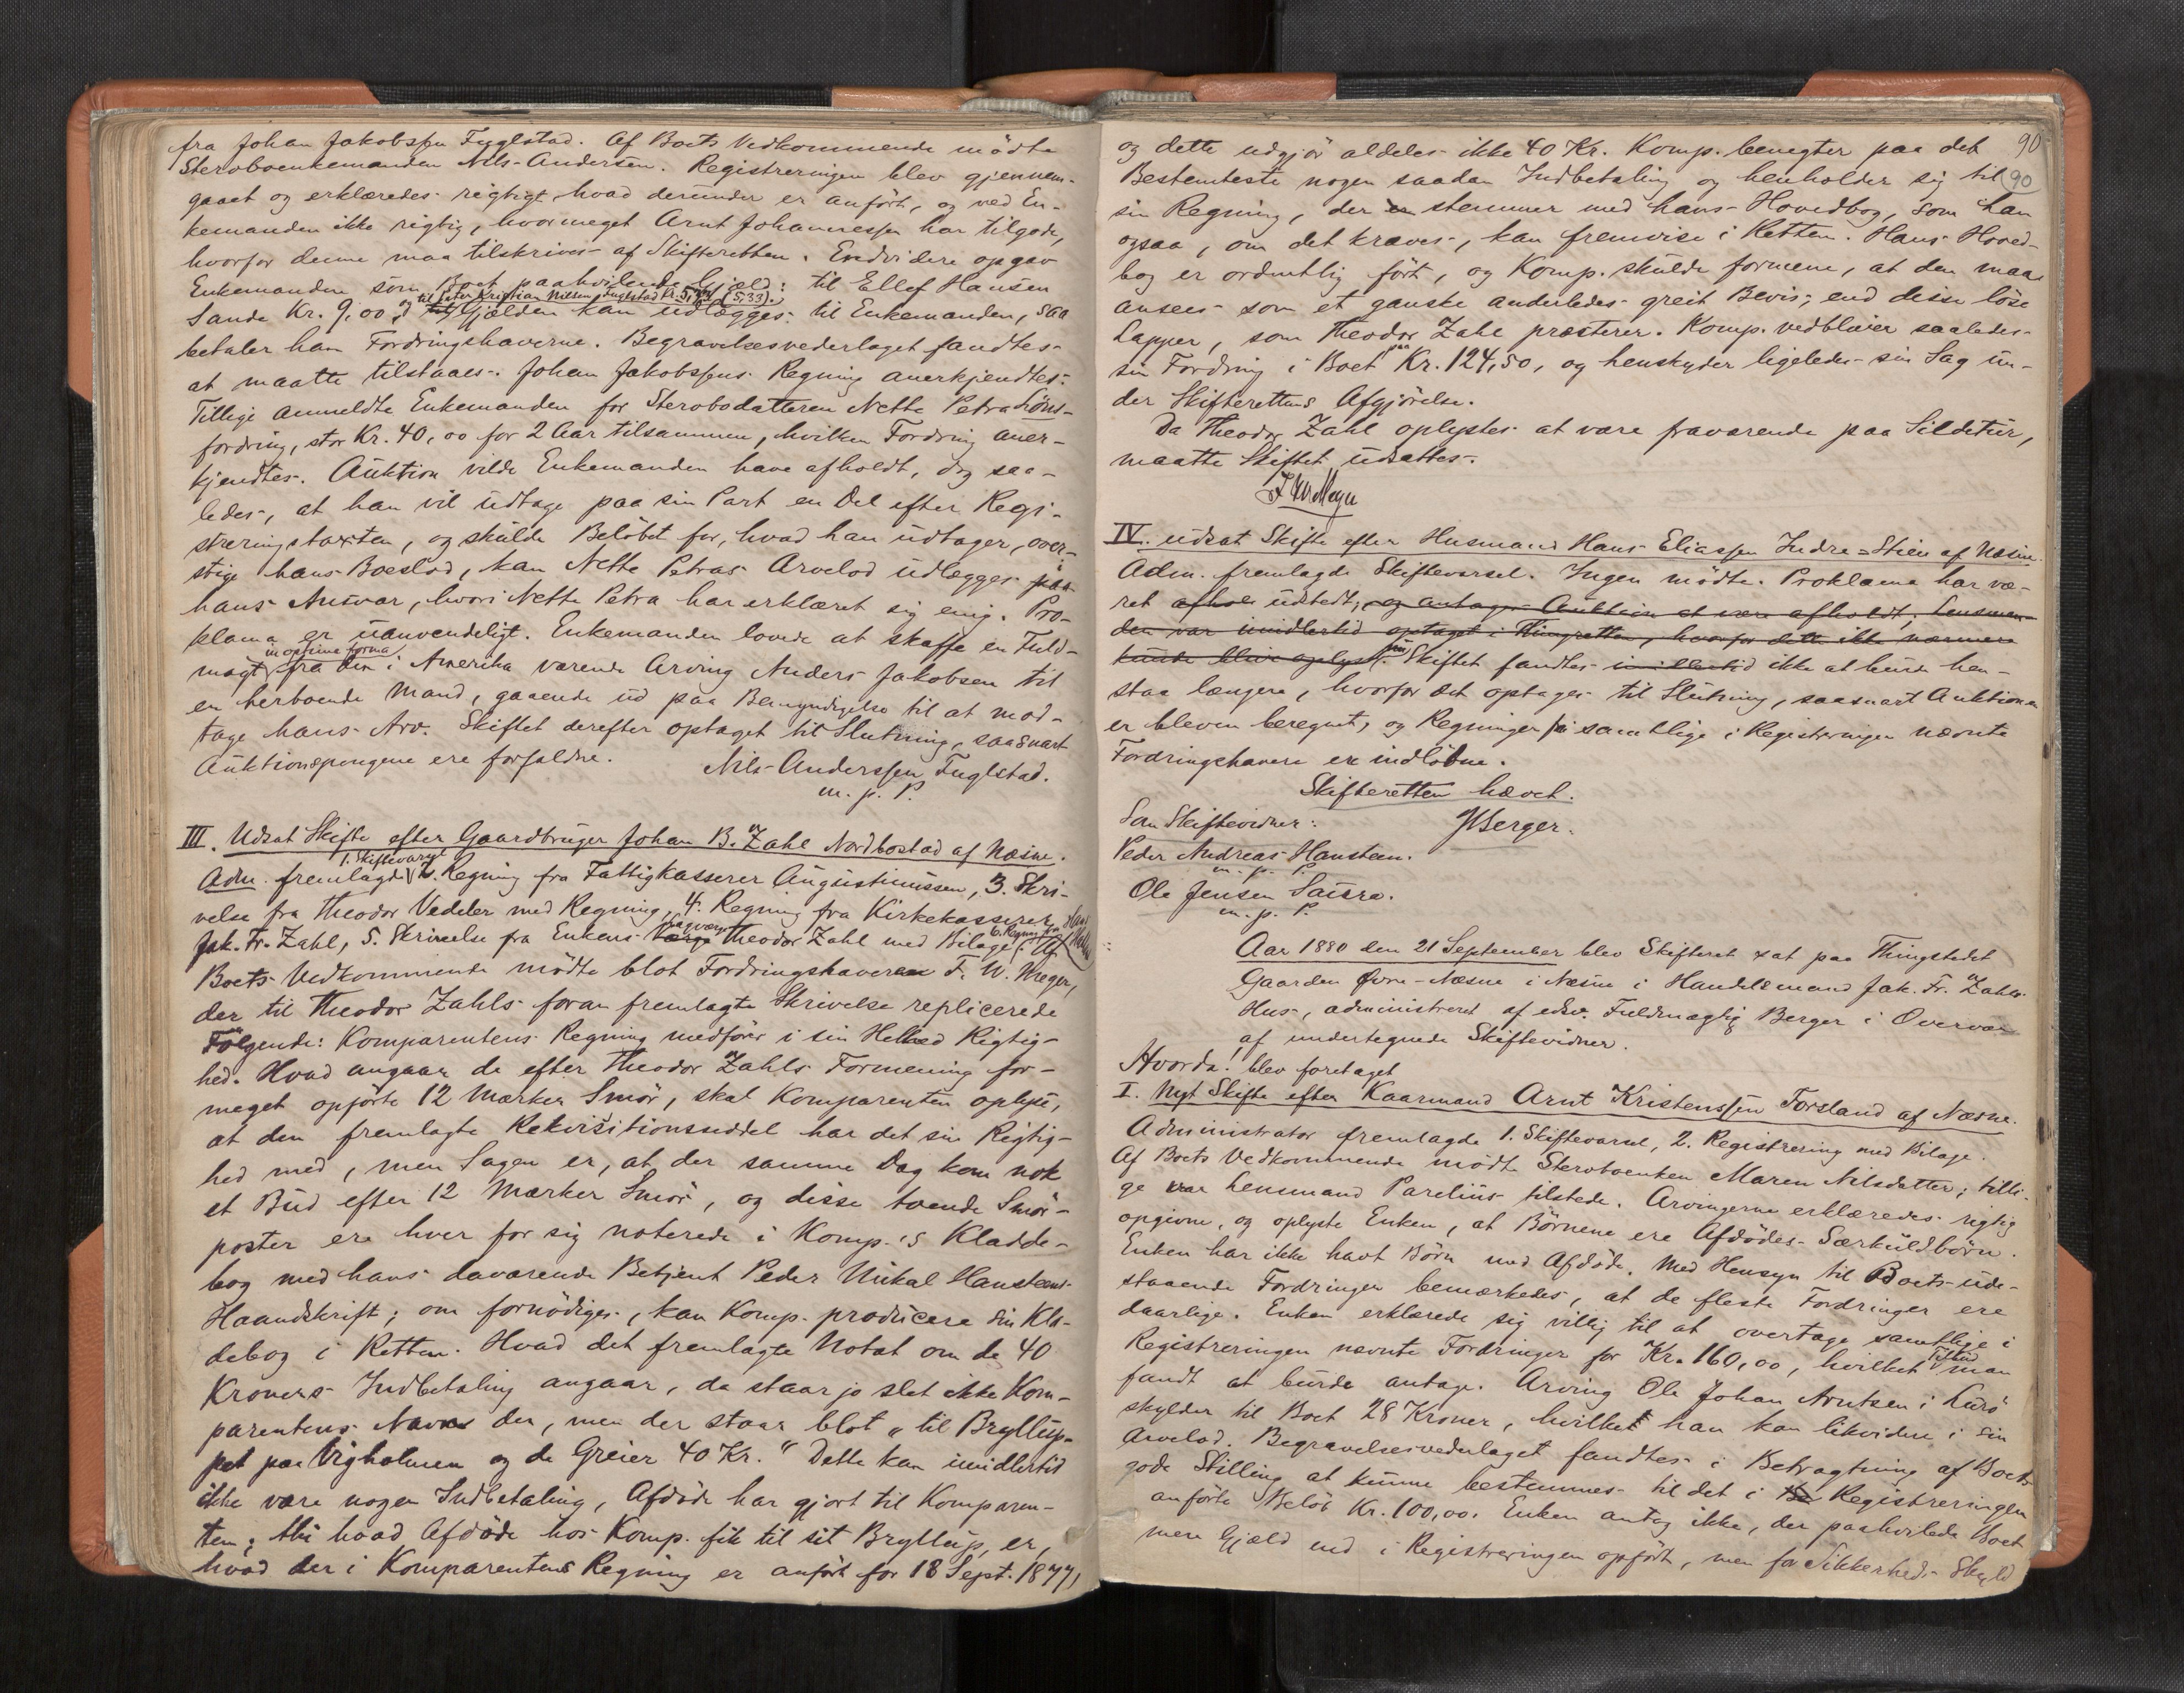 fra Johan Jakobssen Fuglstad. Af Boets Vedkommende mødte
Sterboenkemanden Nils Andersen. Registreringen blev gjennem-
gaaet og erklæredes rigtigt, hvad derunder er anført, og ved En-
kemanden ikke rigtig, hvormeget Arnt Johannessen har tilgode,
hvorfor denne maa tilskrives af Skifteretten. Endvidere opgav
Enkemanden som Boet paahvilende Gjæld: til Ellef Hansen
Sande Kr. 9,00 og til Peter Kristian Nilsen Fuglstad Kr. 5,33 (5,33).
Gjælden kan udlægges til Enkemanden, saa
betaler han Fordringshaverne. Begravelsesvederlaget fandtes
at maatte tilstaaes. Johan Jakobssens Regning anerkjendtes.
Tillige anmeldte Enkemanden for Sterbodatteren Nette Petra Løns-
fordring, stor Kr. 40,00 for 2 Aar tilsammen, hvilken Fordring aner-
kjendtes. Auktion vilde Enkemanden have afholdt, dog saa-
ledes, at han vil udtage paa sin Part en Del efter Regi-
streringstaxten, og skulde Beløbet for, hvad han udtager, over-
stige hans Boeslod, kan Nette Petras Arvelod udlægges paa
hans Ansvar, hvori Nette Petra har erklæret sig enig. Pro-
klama er uanvendeligt. Enkemanden lovede at skaffe en Fuld-
magt in optima forma fra den i Amerika værende Arving Anders Jakobsen til
en herboende Mand, gaaende ud paa Bemyndigelse til at mod-
tage hans Arv. Skiftet derefter optaget til Slutning, saasnart
Auktionspengene ere forfaldne.
Nils Anderssen Fuglstad.
m. p. P.
III. Udsat Skifte efter Gaardbruger Johan B. Zahl Nordbostad af Næsne.
Adm. fremlagde 1. Skiftevarsel 2. Regning fra Fattigkasserer Augustinussen, 3. Skri-
velse fra Theodor Vedeler med Regning, 4. Regning fra Kirkekasserer
Jak. Fr. Zahl, 5. Skrivelse fra Enkens Lagværge Theodor Zahl med Bilage 6. Regning fra Af
Boets Vedkommende mødte blot Fordringshaveren F. W. Meyer,
der til Theodor Zahls foran fremlagte Skrivelse replicerede
Følgende: Komparentens Regning medfører i sin Helhed Rigtig-
hed. Hvad angaar de efter Theodor Zahls Formening for-
meget opførte 12 Marker Smør, skal Komparenten oplyse,
at den fremlagte Rekvisitionsseddel har det sin Rigtig-
hed med, men Sagen er, at der samme Dag kom nok
et Bud efter 12 Marker Smør, og disse tvende Smør-
poster ere hver for sig noterede i Komp.'s Kladde-
bog med hans daværende Betjent Peder Mikal Hansteens
Haandskrift; om fornødiges, kan Komp. producere sin Kla-
debog i Retten. Hvad det fremlagte Notat om de 40
Kroners Indbetaling angaar, da staar jo slet ikke Kom-
parentens Navn der, men der staar blot "til Bryllup-
pet paa Vigholmen og de Greier 40 Kr." Dette kan imidlertid
ikke være nogen Indbetaling, Afdøde har gjort til Komparen-
ten; thi hvad Afdøde hos Komp. fik til sit Bryllup, er,
hvad der i Komparentens Regning er anført for 18 Sept. 1877,
90
90
og dette udgjør aldeles ikke 40 Kr. Komp. benegter paa det
Bestemteste nogen saadan Indbetaling og henholder sig til
sin Regning, der stemmer med hans Hovedbog, som han
ogsaa, om det kræves, kan fremvise i Retten. Hans Hoved-
bog er ordentlig ført, og Komp. skulde formene, at den maa
ansees som et ganske anderledes greit Bevis, end disse løse
Lapper, som Theodor Zahl præsterer. Komp. vedbliver saaledes
sin Fordring i Boet paa Kr. 124,50, og henskyder ligeledes sin Sag un-
der Skifterettens Afgjørelse.
Da Theodor Zahl oplystes at være fraværende paa Sildetur,
maatte Skiftet udsættes.
F W Meyer
IV. Udsat Skifte efter Husmand Hans Eliassen Indre-Stien af Næsne.
Adm. fremlagde Skiftevarsel. Ingen mødte. Proklama har væ-
ret afhol udstedt, og antages Auktion at være afholdt, Lensman-
den var imidlertid optaget i Thingretten, hvorfor dette ikke nærmere
kunde blive oplyst. Skiftet fandtes imidlertid ikke at burde hen-
staa længere, hvorfor det optages til Slutning, saasnart Auktionen
er bleven beregnet, og Regninger fra samtlige i Registreringen nævnte
Fordringshavere er indløbne.
Skifteretten hævet.
Som Skiftevidner:
JBerger.
Peder Andreas Hansteen.
m. p. P.
Ole Jensen Saura.
m. p. P.
Aar 1880 den 21 September blev Skifteret sat paa Thingstedet
Gaarden Øvre-Næsne i Næsne i Handelsmand Jak. Fr. Zahls
Hus, administreret af edsv. Fuldmægtig Berger i Overvær
af undertegnede Skiftevidner.
Hvorda! blev foretaget
I. Nyt Skifte efter Kaarmand Arnt Kristenssen Forsland af Næsne.
Administrator fremlagde 1. Skiftevarsel, 2. Registrering med Bilage.
Af Boets Vedkommende mødte Sterboenken Maren Nilsdatter; tilli-
ge var Lensmand Parelius tilstede. Arvingerne erklæredes rigtig
opgivne, og oplyste Enken, at Børnene ere Afdødes Særkuldbørn.
Enken har ikke havt Børn med Afdøde. Med Hensyn til Boets ude-
staaende Fordringer bemærkedes, at de fleste Fordringer ere
daarlige. Enken erklærede sig villig til at overtage samtlige i
Registreringen nævnte Fordringer for Kr. 160,00, hvilket Tilbud man
fandt at burde antage. Arving Ole Johan Arntsen i Lurø
skylder til Boet 28 Kroner, hvilket han kan likvidere i sin
Arvelod. Begravelsesvederlaget fandtes i Betragtning af Boets
gode Stilling at kunne bestemmes til det i Registreringen
anførte Beløb Kr. 100,00. Enken antog ikke, der paahvilede Boet
mere Gjæld end i Registreringen opført, men for Sikkerheds Skyld